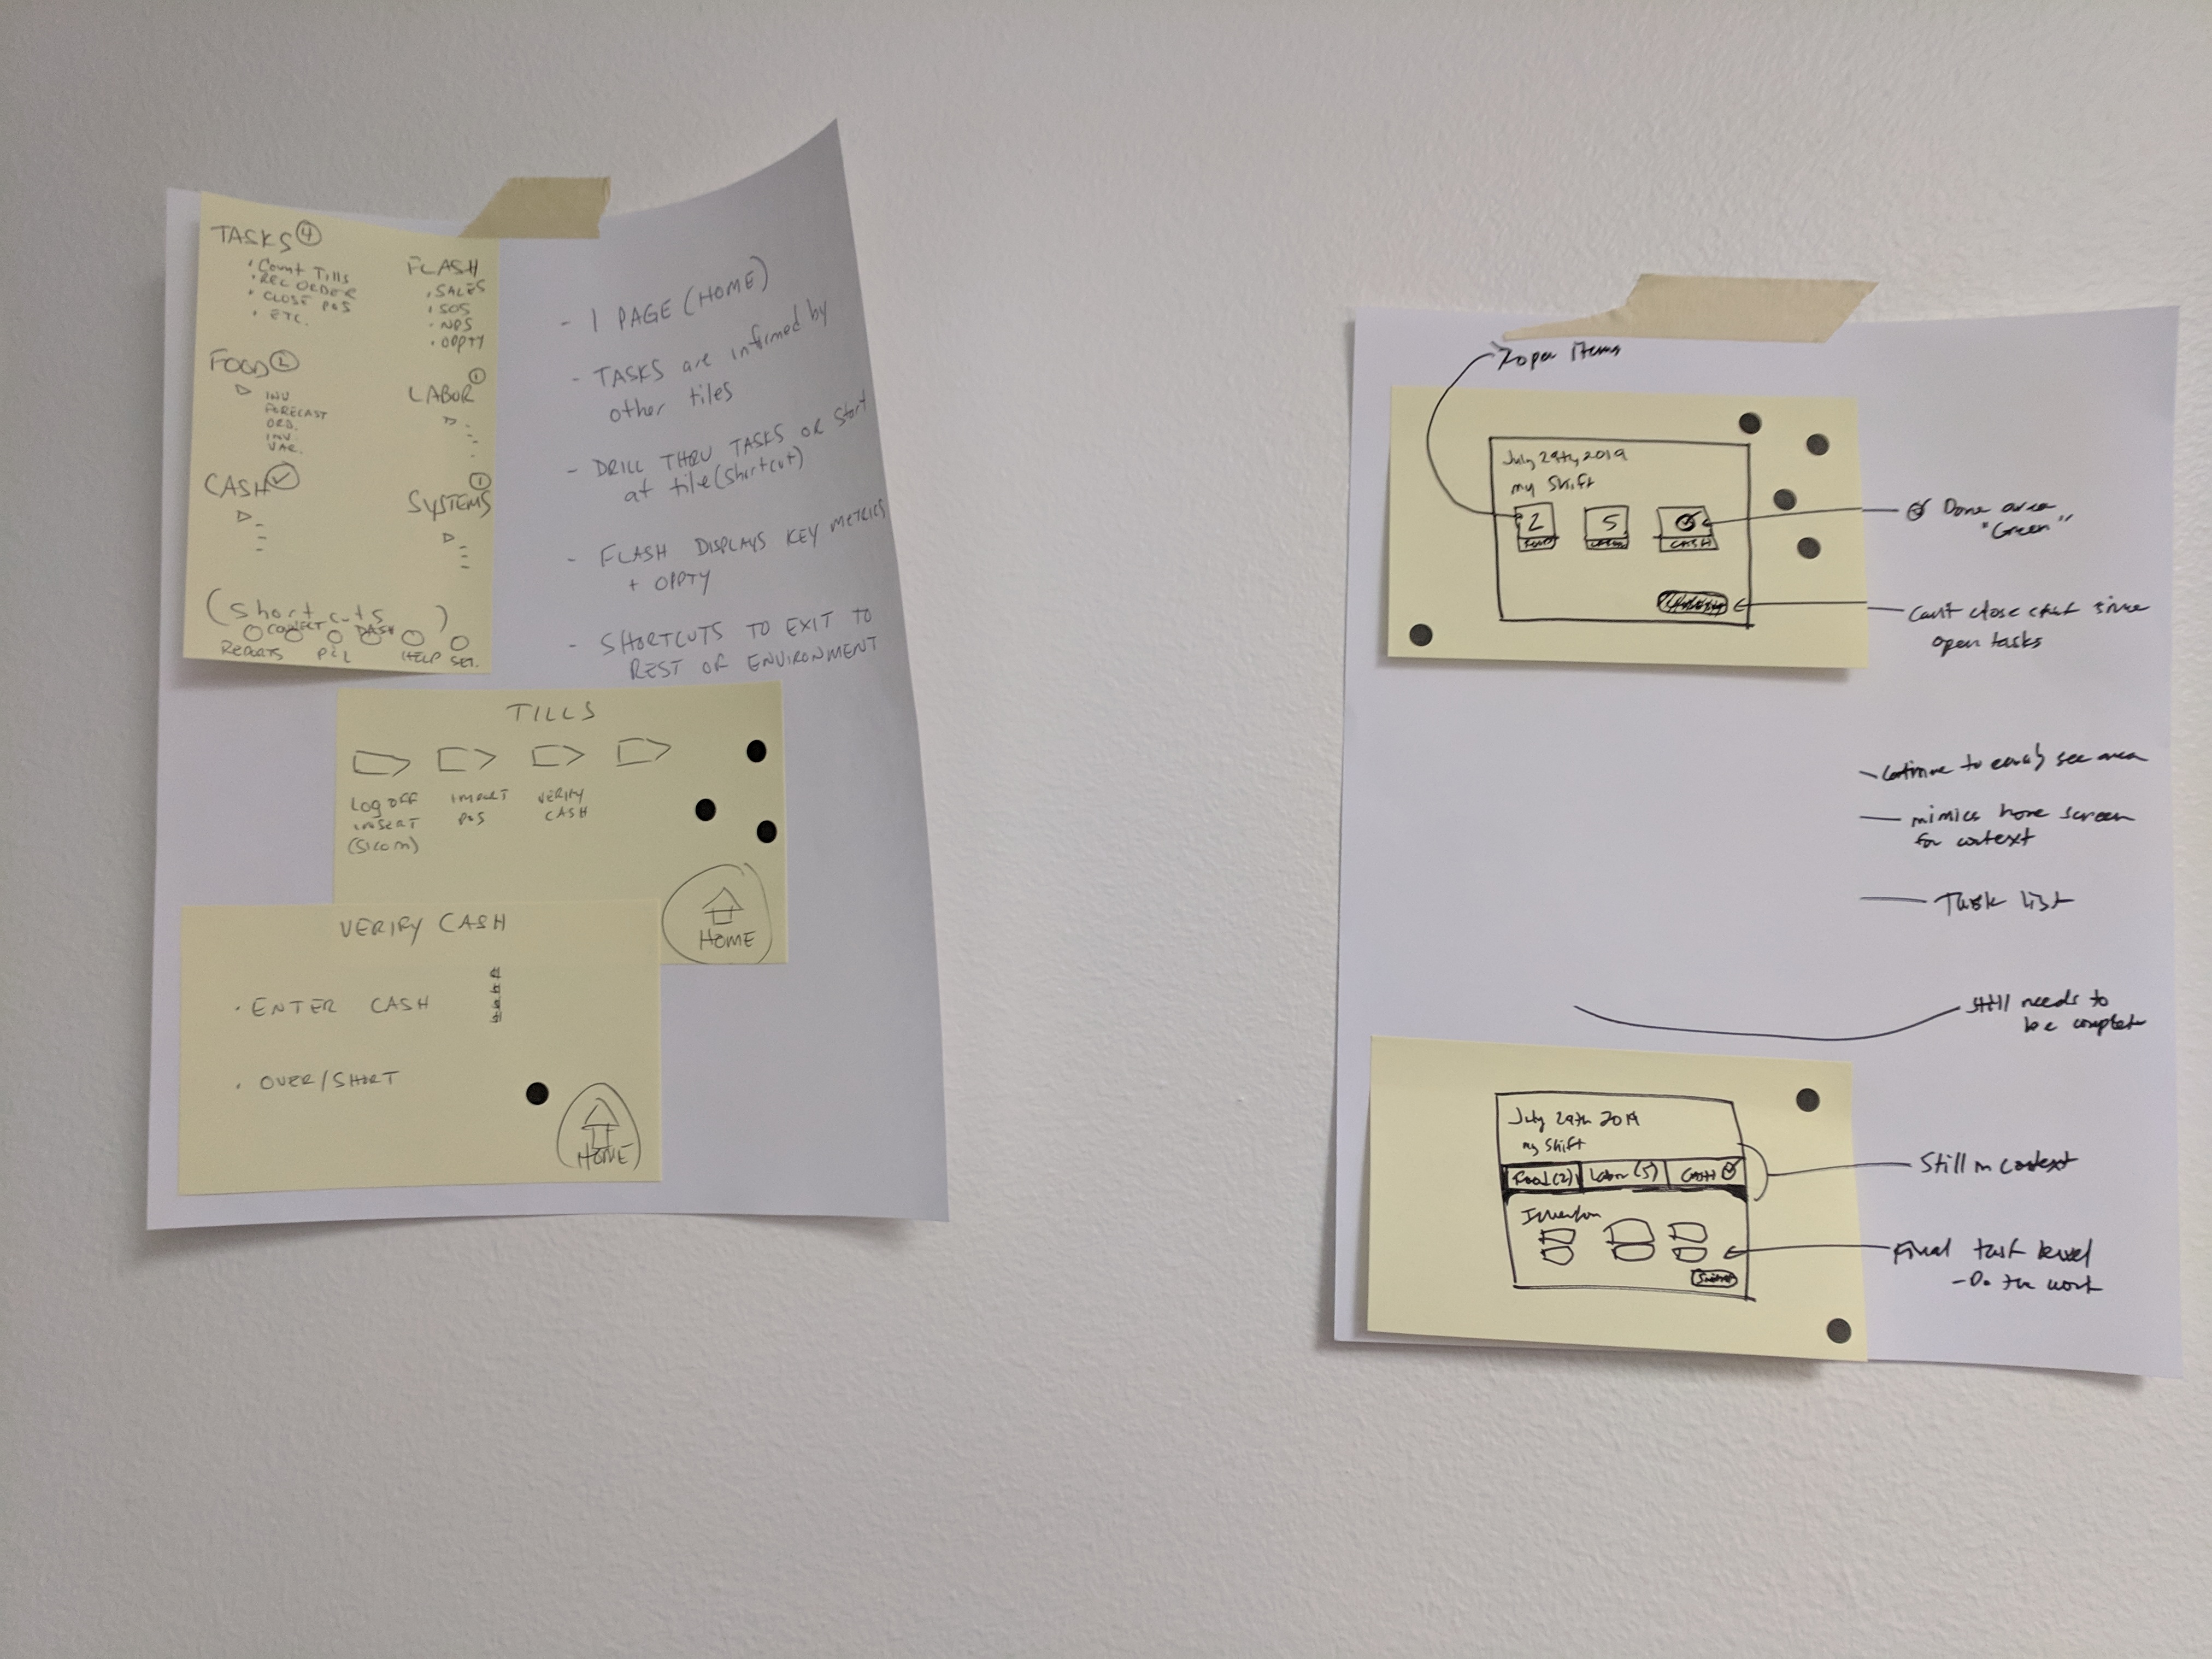 TASKS 4
• Count Tills
• REC ORDER
• CLOSE POS
• ETC.
FLASH
• SALES
• SOS
• NPS
• OPPTY
FOOD 2
INV
FORECAST
ORD.
INV.
VAR.
LABOR 1
CASH
SYSTEMS 1
(Shortcuts)
CONNECT DASH
REPORTS P&L HELP SET.
- 1 PAGE (HOME)
- TASKS are informed by
other tiles
- DRILL THRU TASKS OR Start
at tile (Shortcut)
- FLASH DISPLAYS KEY METRICS
+ OPPTY
- SHORTCUTS TO EXIT TO
REST OF ENVIRONMENT
TILLS
Log OFF
INSERT
(SICOM)
IMPORT
POS
VERIFY
CASH
HOME
VERIFY CASH
• ENTER CASH
• OVER/SHORT
HOME
2 open Items
July 29th, 2019
my Shift
2 5
FOOD LABOR CASH
Done area
"Green"
Can't close since
open tasks
- Continue to see area
- mimics home screen
for context
- Task list
Still needs to
be complete
July 29th 2019
my Shift
Food (2) Labor (5) CASH
Still in context
Final task level
- Do the work